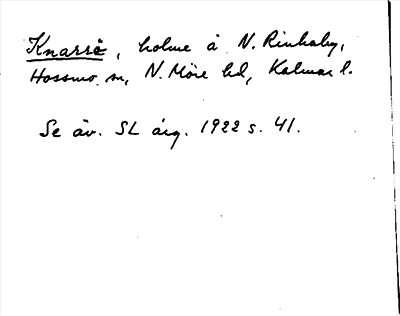 Knarrö, holme å N. Rinkaby,
Hossmo sn, N. Möre hd, Kalmar l.
Se äv. SL årg. 1922 s. 41.